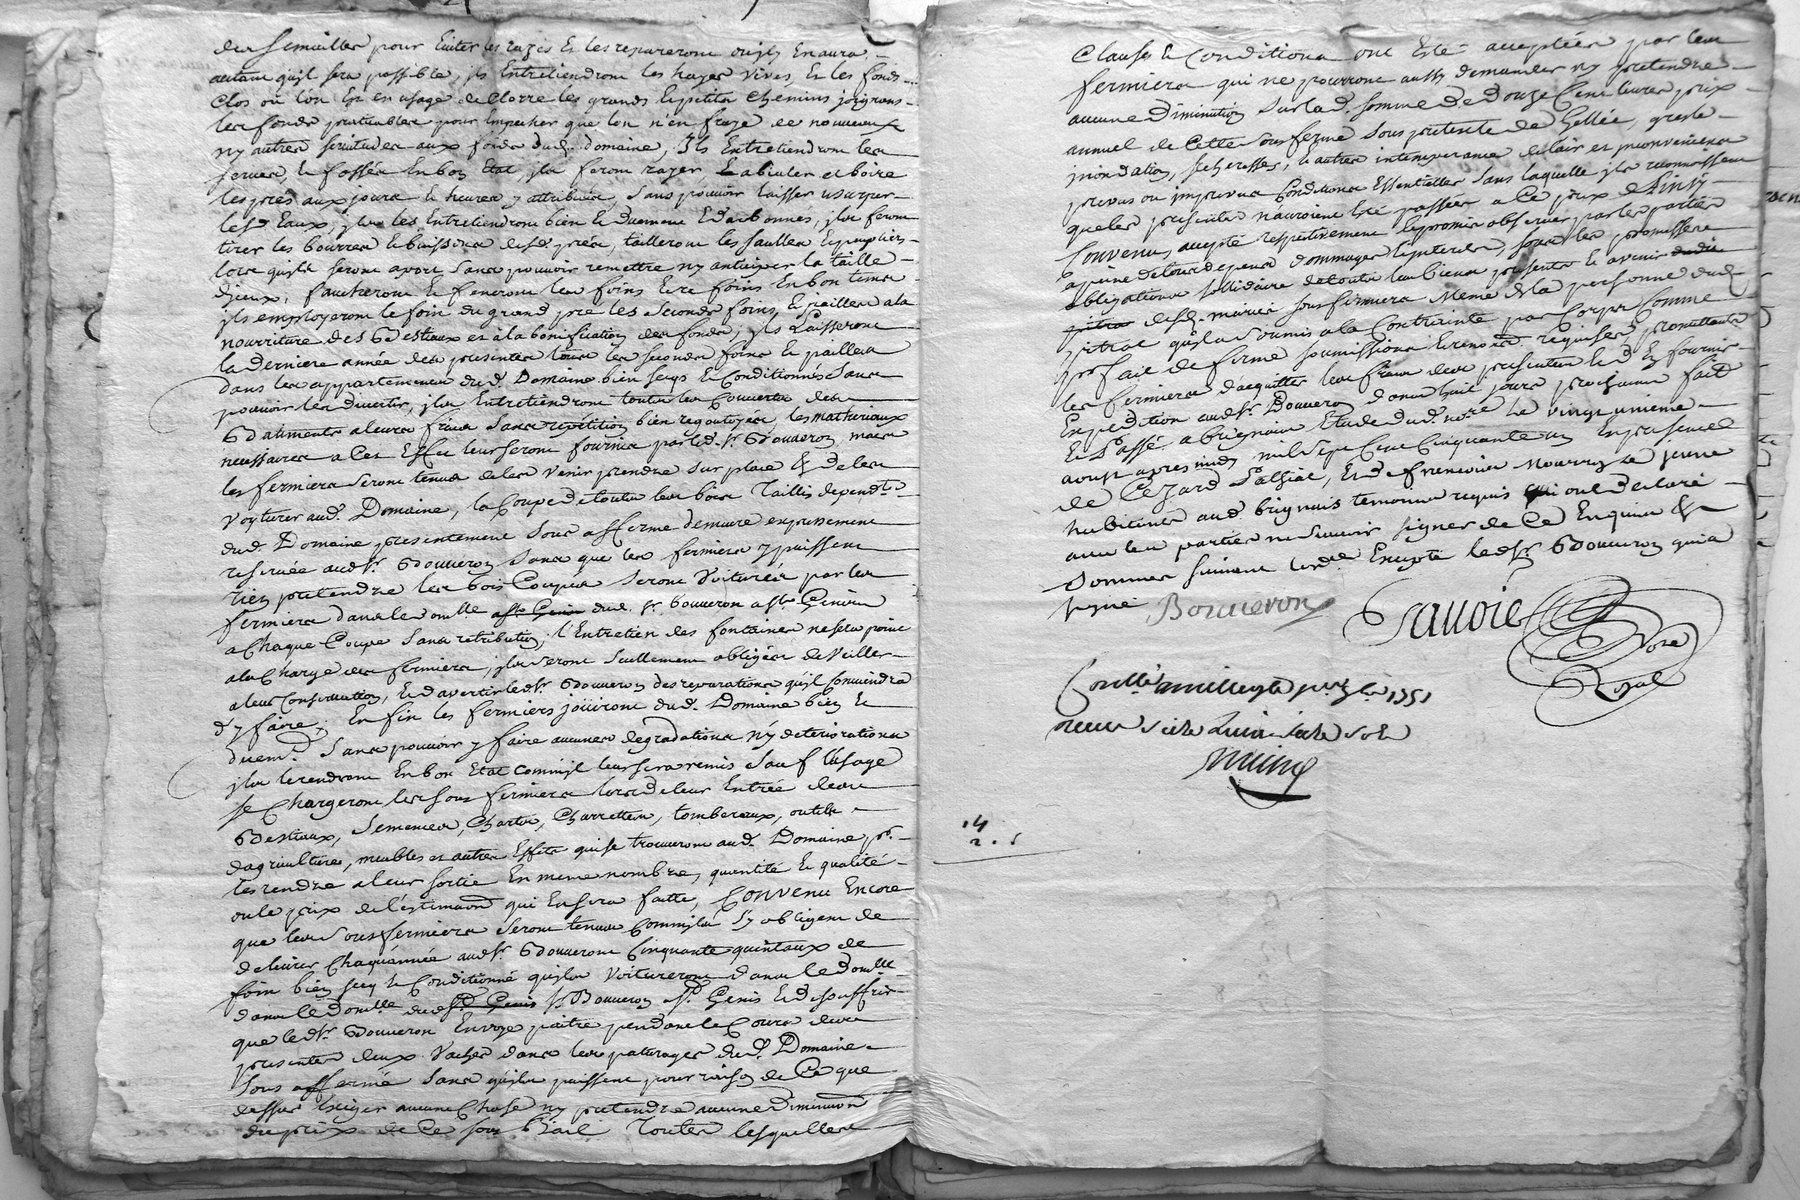 des semailles pour Eviter les razes Et les repareront ou jl y En aura
autant qu'jl sera possible, jls Entretiendront les hayes vives, Et les fonds
Clos ou l'on Est en usage de Clorre les grands Et petits Chemins joignans
les fonds pour Empecher que l'on n'en fraye de nouveaux
ny autres servitudes aux fonds dud. domaine, Jls Entretiendront les
serves, & fossés En bon Etat, jls feront rayer et boire
les prés aux jours & heures y attribués, sans pouvoir laisser usurper
lesd. Eaux, jls les Entretiendront bien & duement jls feront
tirer les bourres & buissons desd. prés, tailleront les saulles & peupliers
lors qu'jls seront sans pouvoir remettre ny anticiper la taille
d'jceux, faucheront & feneront les foins Et re foins En bon tems
jls employeront le foin du grand pré les seconds foins, & pailles a la
nourriture des Bestiaux et a la bonification des fonds, jls Laisseront
la derniere année des presentes tous les seconds foins & pailles
dans les appartements dud. Domaine bien secqs & Conditionnés sans
pouvoir les divertir, jls Entretiendront toutes les Couverts des
Batiments a leurs frais sans repetition bien regoutoyés, les matheriaux
necessaires a Cet Effet leur seront fournis par led. Sr. Bouveron mais
les fermiers seront tenus de les venir prendre sur place & de les
Voyturer aud. Domaine, la Coupe de toutes les bois Taillis dependts.
dud. Domaine presentement sous affermé demeure expressement
reservée aud. Sr. Bouveron sans que les fermiers y puissent
rien pretendre les bois Coupés seront Voiturés par les
fermiers dans le domlle. a St. Genis dud. Sr. bouveron a St. Genis
a Chaque Coupe sans retribution, l'Entretien des fontaines ne sera point
a la Charge des fermiers, jls seront seullement obligés de Veiller
a leur Conservation, & d'avertir led. Sr. Bouveron des reparations qu'jl Conviendra
d'y faire, En fin les fermiers jouiront dud. Domaine bien &
duemt. sans pouvoir y faire aucunes degradations n'y deteriorations
jls le rendront En bon Etat Comm'jl leur sera remis sauf l'usage
se Chargeront les sous fermiers lors de leur Entrée des
Bestiaux, semences, Chars, Charrettes, tombereaux, outils
d'agriculture, meubles et autres Effets qui se trouveront aud. Domaine pr.
les rendre a leur sortie En meme nombre, quantité & qualité
ou le prix de l'estimaon qui En sera faitte, Convenu Encore
que les sous fermiers seront tenus Comm'jls s'y obligent de
delivrer Chaqu'année aud. Sr. Bouveront Cinquante quintaux de
foin bien secq & Conditionné qu'jls Voitureront dans le domlle.
dans le domlle. dud. St. Genis Sr. Bouveron a St. Genis & de souffrir
que led. Sr. Bouveron Envoye paitre pendant le Cours des
presentes deux Vaches dans les paturages dud. Domaine
sous affermé sans qu'jls puissent pour raison de Ce que
dessus Exiger aucune Chose ny pretendre aucune Diminuon
du prix de Ce sous Bail Toutes lesquelles
Clauses & Conditions ont Esté acceptées par les
fermiers qui ne pourront aussy demander ny pretendre
aucune Diminution sur lad. somme de douze Cent livres prix
annuel de Cette sous ferme sous pretexte de Gellée, gresle
jnondation, secheresses, & autres intemperance de l'air et jnconveniens
prevus ou imprevus Conditions Essentielles sans laquelle jls reconnoissent
que les presentes n'auroient Eté passées a Ce prix Ainsy
Convenu, accepté respectivement & promis observer par les parties
a peine de tous depens dommages & jnterets, sous les promesses
obligations sollidaire de toutes leurs biens presents & avenir
desd. mariés sous fermiers Meme de la personne dud.
pitrat qu'jls a soumis a la Contrainte par Corps Comme
pr. fait de ferme soumissions & renond. requises, promettants
les fermiers d'acquitter les frais des presentes & d'En fournir
Expedition aud. Sr. Bouveron d'ans huit jours prochains fait
& Passé a Brignais Etude dud. nore. Le vingt unieme
aoust apres midy mil sept Cent Cinquante un En presence
de Cezard Et de francois le jeune
habitants aud. brignais temoins requis qui ont declaré
avec les parties ne scavoir signer de Ce Enquis &
Sommés suivant l'ord. Excepté led. Sr. Bouveron qui a
signé Bouueron Savoie Nore
Royal
1751
14
2